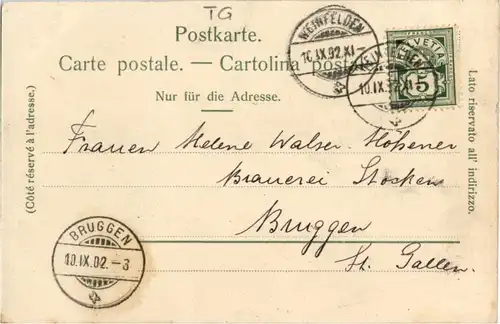 TG
Postkarte.
Carte postale. — Cartolina postale.
Nur für die Adresse.
(Côté réservé à l'adresse.)
Lato riservato all' indirizzo.
WEINFELDEN
10.IX.02.XI-
10.IX.02.XI
FRANCO
HELVETIA
15
Frauen Helene Walser-Hohener
Brauerei Stocken
Bruggen
St. Gallen.
BRUGGEN
10.IX.02.-3